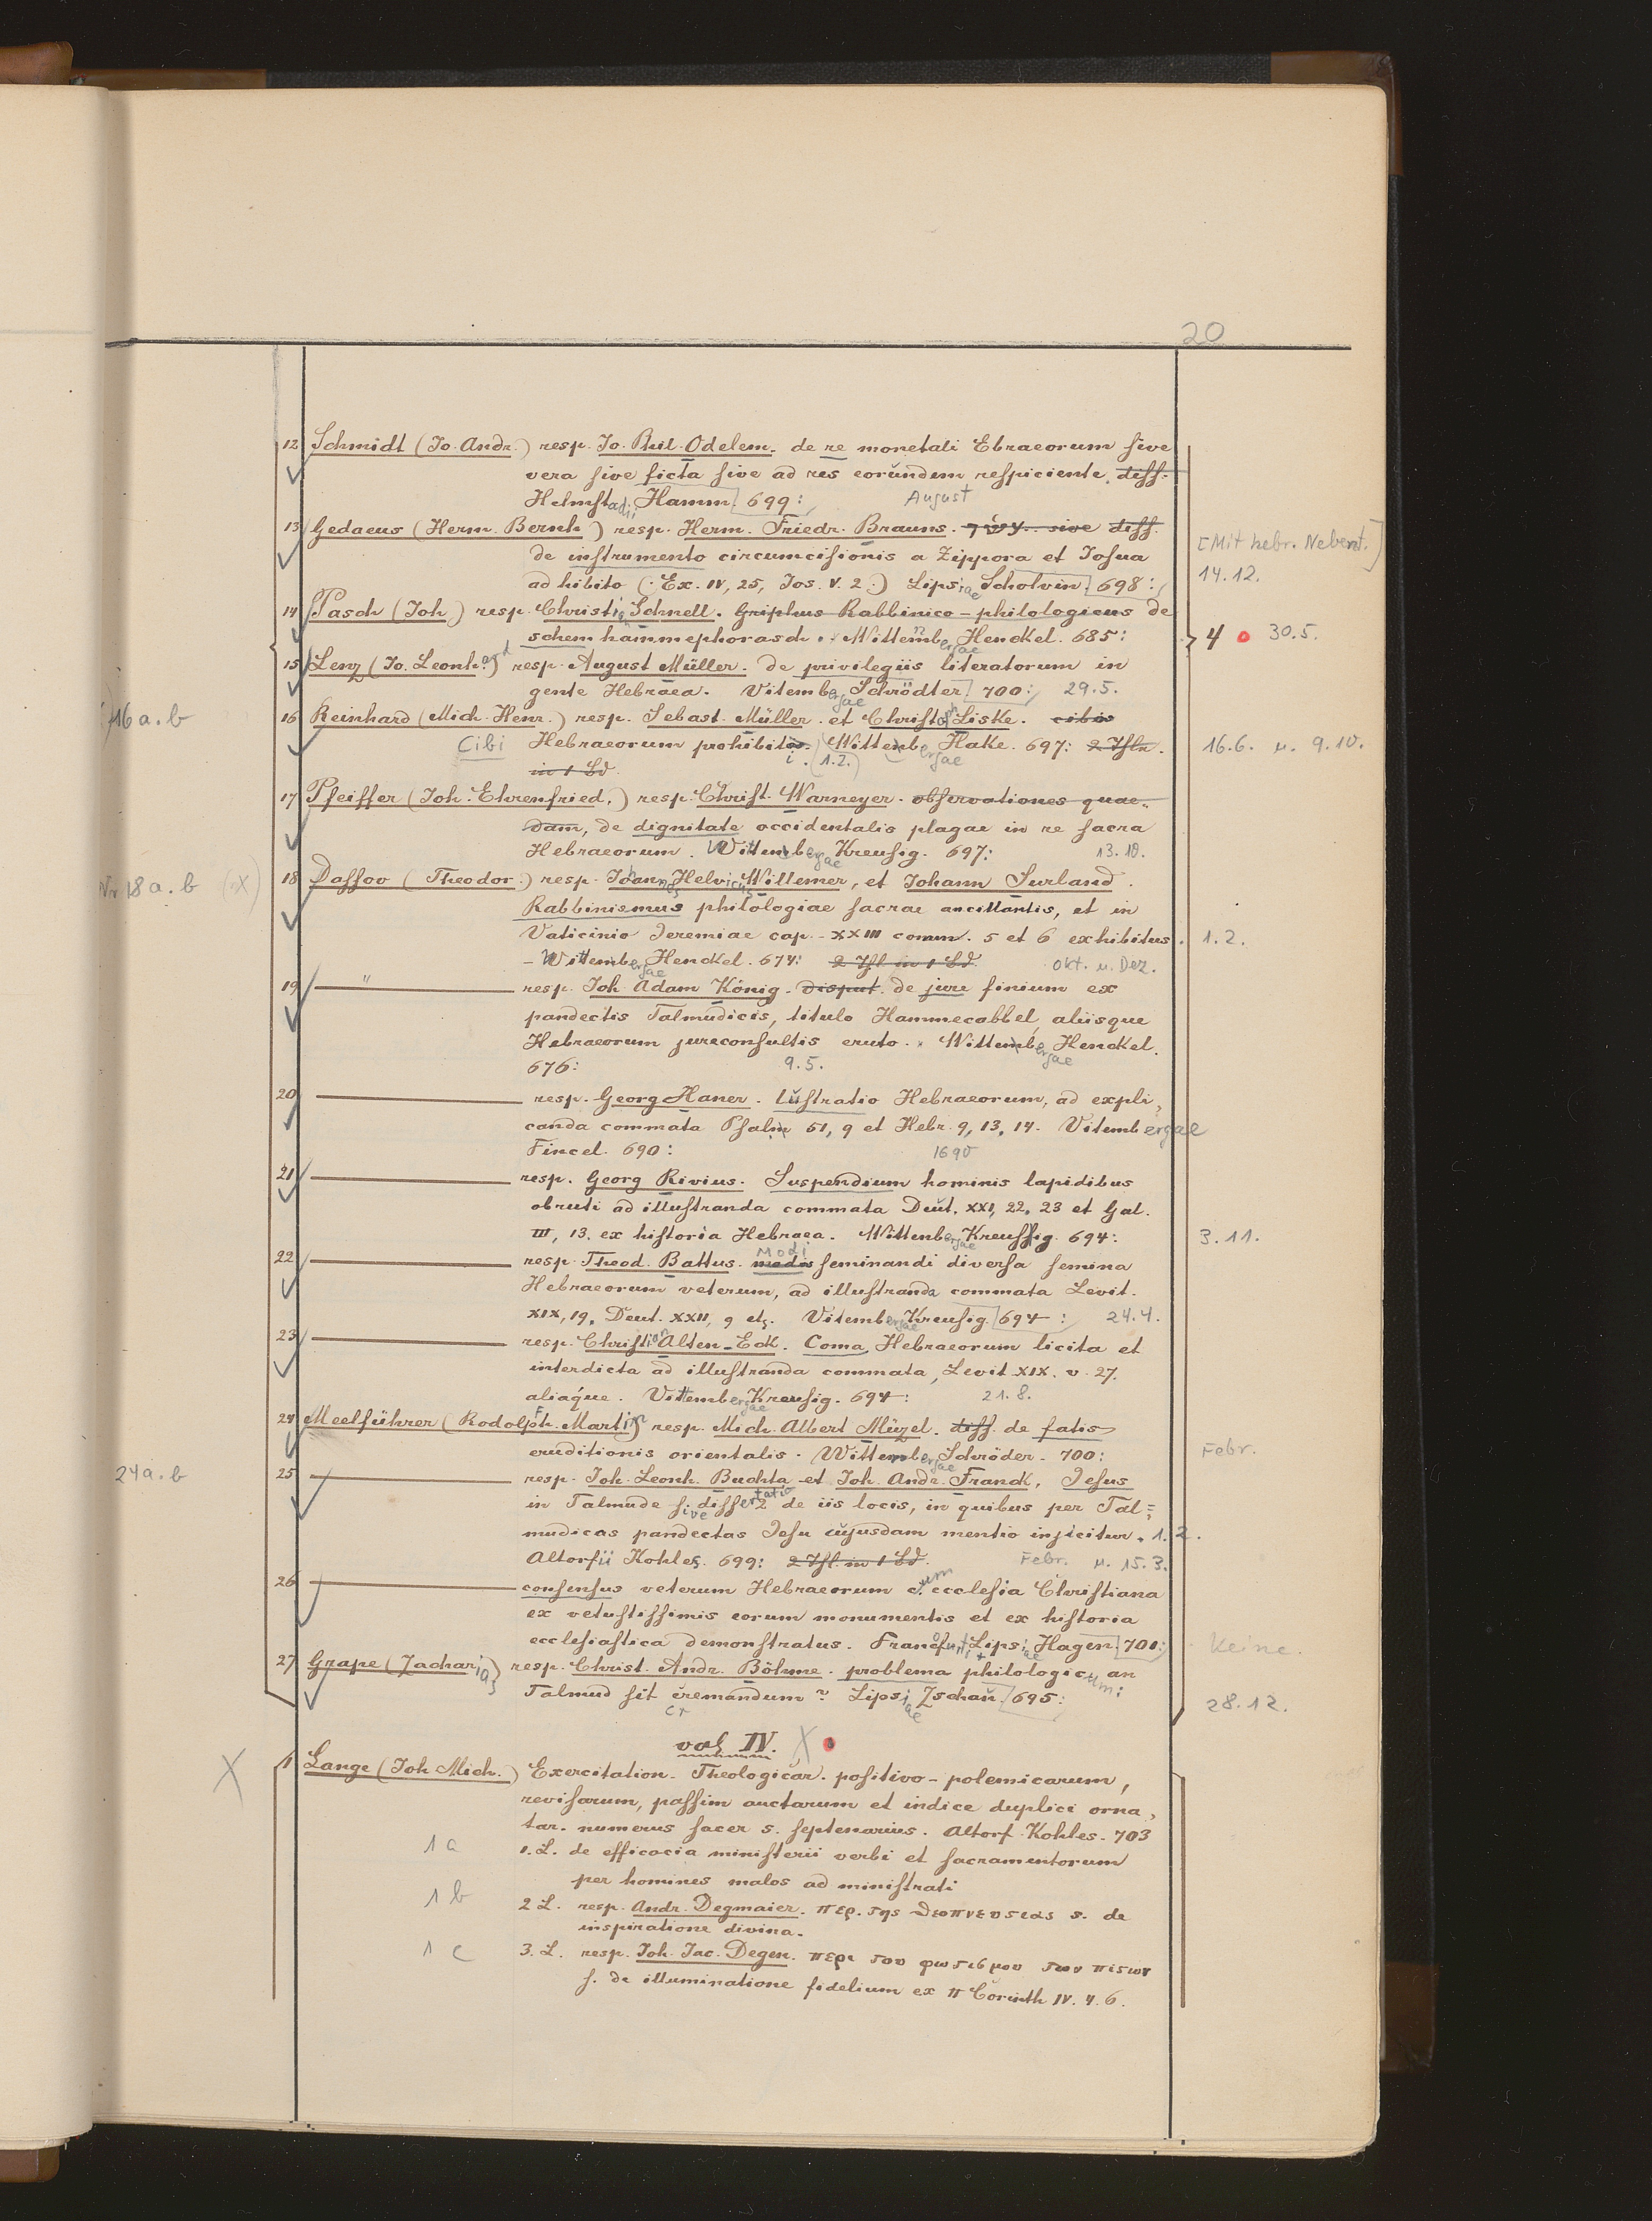 20
12 Schmidt (Io. Andr.) resp. Io. Phil. Odelem. de re monetali Ebraeorum sive
vera sive ficta sive ad res eorundem respiciente. diss.
Helmstadii Hamm. 699: August
13 Gedaeus (Herm. Bernh.) resp. Herm. Friedr. Brauns. sive diss.
de instrumento circumcisionis a Zippora et Iosua [Mit hebr. Nebent.]
adhibito (Ex. IV, 25, Jos. V. 2.) Lipsiae Scholvin. 698: 14.12.
14 Pasch (Joh.) resp. Christian Schnell. Griphus Rabbinico-philologicus de
schem hammephorasch. Wittenbergae Henckel. 685: 4 30.5.
15 Lenz (Io. Leonhard) resp. August Müller. de privilegiis literatorum in
gente Hebraea. Vitembergae Schrödter 700: 29.5.
16 a.b 16 Reinhard (Mich. Henr.) resp. Sebast. Müller. et Christoph Liske. cibis
Cibi Hebraeorum prohibiti. (1.2.) Wittenbergae Hake. 697: 2 Thle. 16.6. u. 9.10.
in 1 Bd.
17 Pfeiffer (Joh. Ehrenfried.) resp. Christ. Warneyer. observationes quae-
dam, de dignitate occidentalis plagae in re sacra
Hebraeorum. Wittenbergae Kreusig. 697: 13.10.
Nr 18 a.b (X) 18 Dassov (Theodor.) resp. Johannes Helvicus Willemer, et Johann Surland.
Rabbinismus philologiae sacrae ancillantis, et in
Vaticinio Jeremiae cap. XXIII comm. 5 et 6 exhibitus. 1.2.
Wittembergae Henckel. 674: 2 Thl. in 1 Bd. Okt. u. Dez.
19 " resp. Joh. Adam König. disput. de jure finium ex
pandectis Talmudicis, titulo Hammecabbel, aliisque
Hebraeorum jureconsultis eruto. Wittenbergae Henckel.
676: 9.5.
20 resp. Georg Haner. Lustratio Hebraeorum, ad expli-
canda commata Psalm 51, 9 et Hebr. 9, 13, 14. Vitembergae
Fincel. 690: 1690
21 resp. Georg Rivius. Suspendium hominis lapidibus
obruti ad illustranda commata Deut. XXI, 22, 23 et Gal.
III, 13. ex historia Hebraea. Wittenbergae Kreussig. 694: 3.11.
22 resp. Theod. Battus. Modi modis seminandi diversa semina
Hebraeorum veterum, ad illustranda commata Levit.
XIX, 19, Deut. XXII, 9 etc. Vitembergae Kreusig. 694: 24.4.
23 resp. Christian Alten-Eck. Coma Hebraeorum licita et
interdicta ad illustranda commata, Levit. XIX. v. 27.
aliaque. Vittembergae Kreusig. 694: 21.8.
24 Meelführer (Rodolph. Martin) resp. Mich. Albert Müzel. diss. de fatis
eruditionis orientalis. Wittenbergae Schröder. 700: Febr.
24a.b 25 resp. Joh. Leonh. Buchta et Joh. Andr. Franck, Jesus
in Talmude sive dissertatio 2 de iis locis, in quibus per Tal-
mudicas pandectas Jesu cujusdam mentio injicitur. 1.2.
Altorfii Kohles. 699: 2 Thl. in 1 Bd. Febr. u. 15.3.
26 consensus veterum Hebraeorum cum ecclesia Christiana
ex vetustissimis eorum monumentis et ex historia
ecclesiastica demonstratus. Francofurti + Lipsiae Hagen. 701: Keine.
27 Grape (Zacharias) resp. Christ. Andr. Böhme. problema philologicum: an
Talmud sit cremandum? Lipsiae Zschau. 695: 28.12.
cr
vol IV. X
X 1 Lange (Joh. Mich.) Exercitation. Theologicar. positivo-polemicarum,
revisarum, passim auctarum et indice duplici orna-
tar. numerus sacer s. septenarius. Altorf. Kohles. 703
1 a 1. L. de efficacia ministerii verbi et sacramentorum
per homines malos administrati
1 b 2 L. resp. Andr. Degmaier. περ. της θεοπνευστιας s. de
inspiratione divina.
1 c 3. L. resp. Joh. Jac. Degen. περι του φωτισμου των πιστων
s. de illuminatione fidelium ex II Corinth IV. 4. 6.